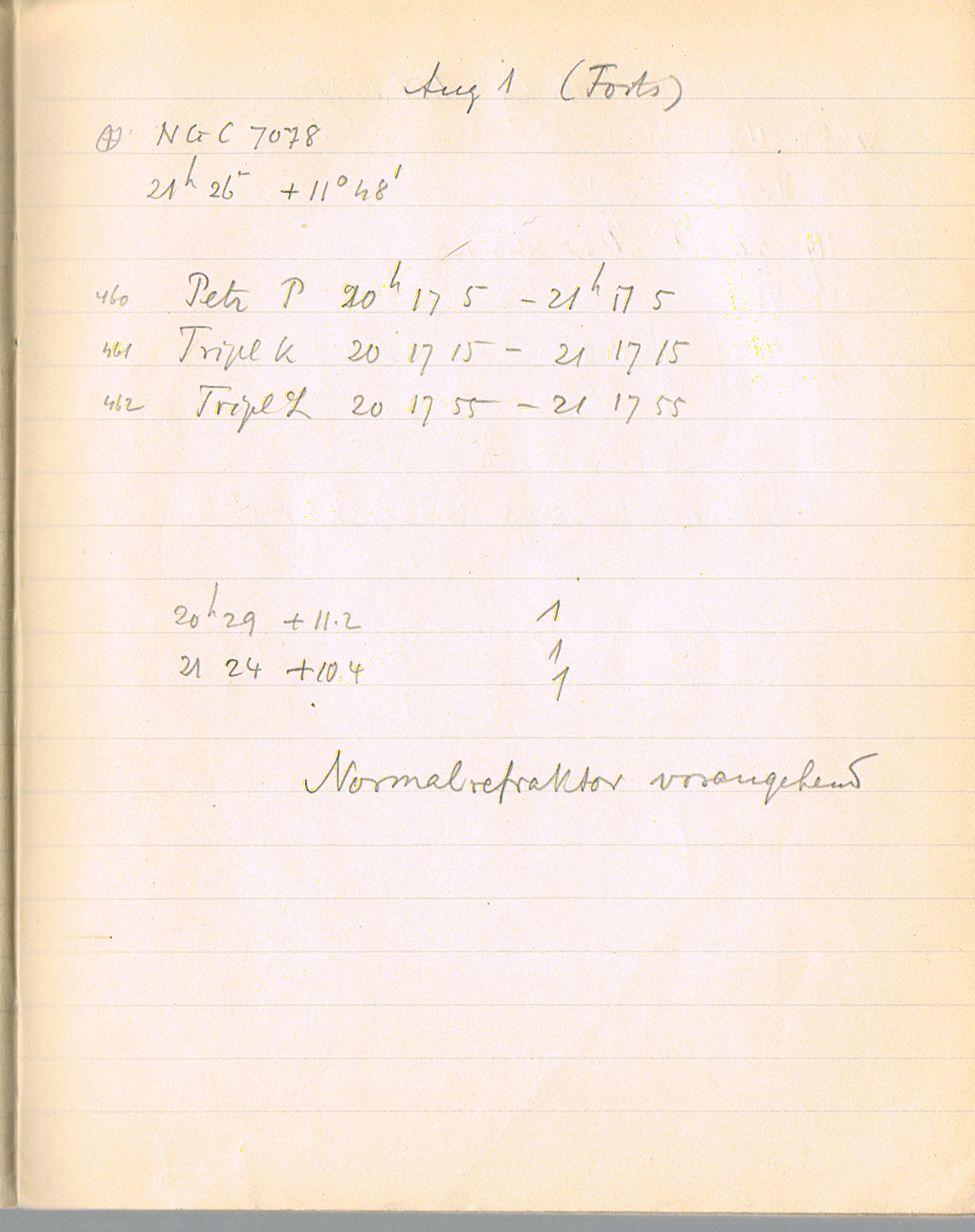 Aug 1 (Forts)
⊕ NGC 7078
21h 25 +11° 48'
460 Petz P 20h 17 5 - 21h 17 5
461 Tripel K 20 17 15 - 21 17 15
462 Tripel L 20 17 55 - 21 17 55
20h 29 +11.2 1
1
21 24 +10.4 1
Normalrefraktor vorangehend